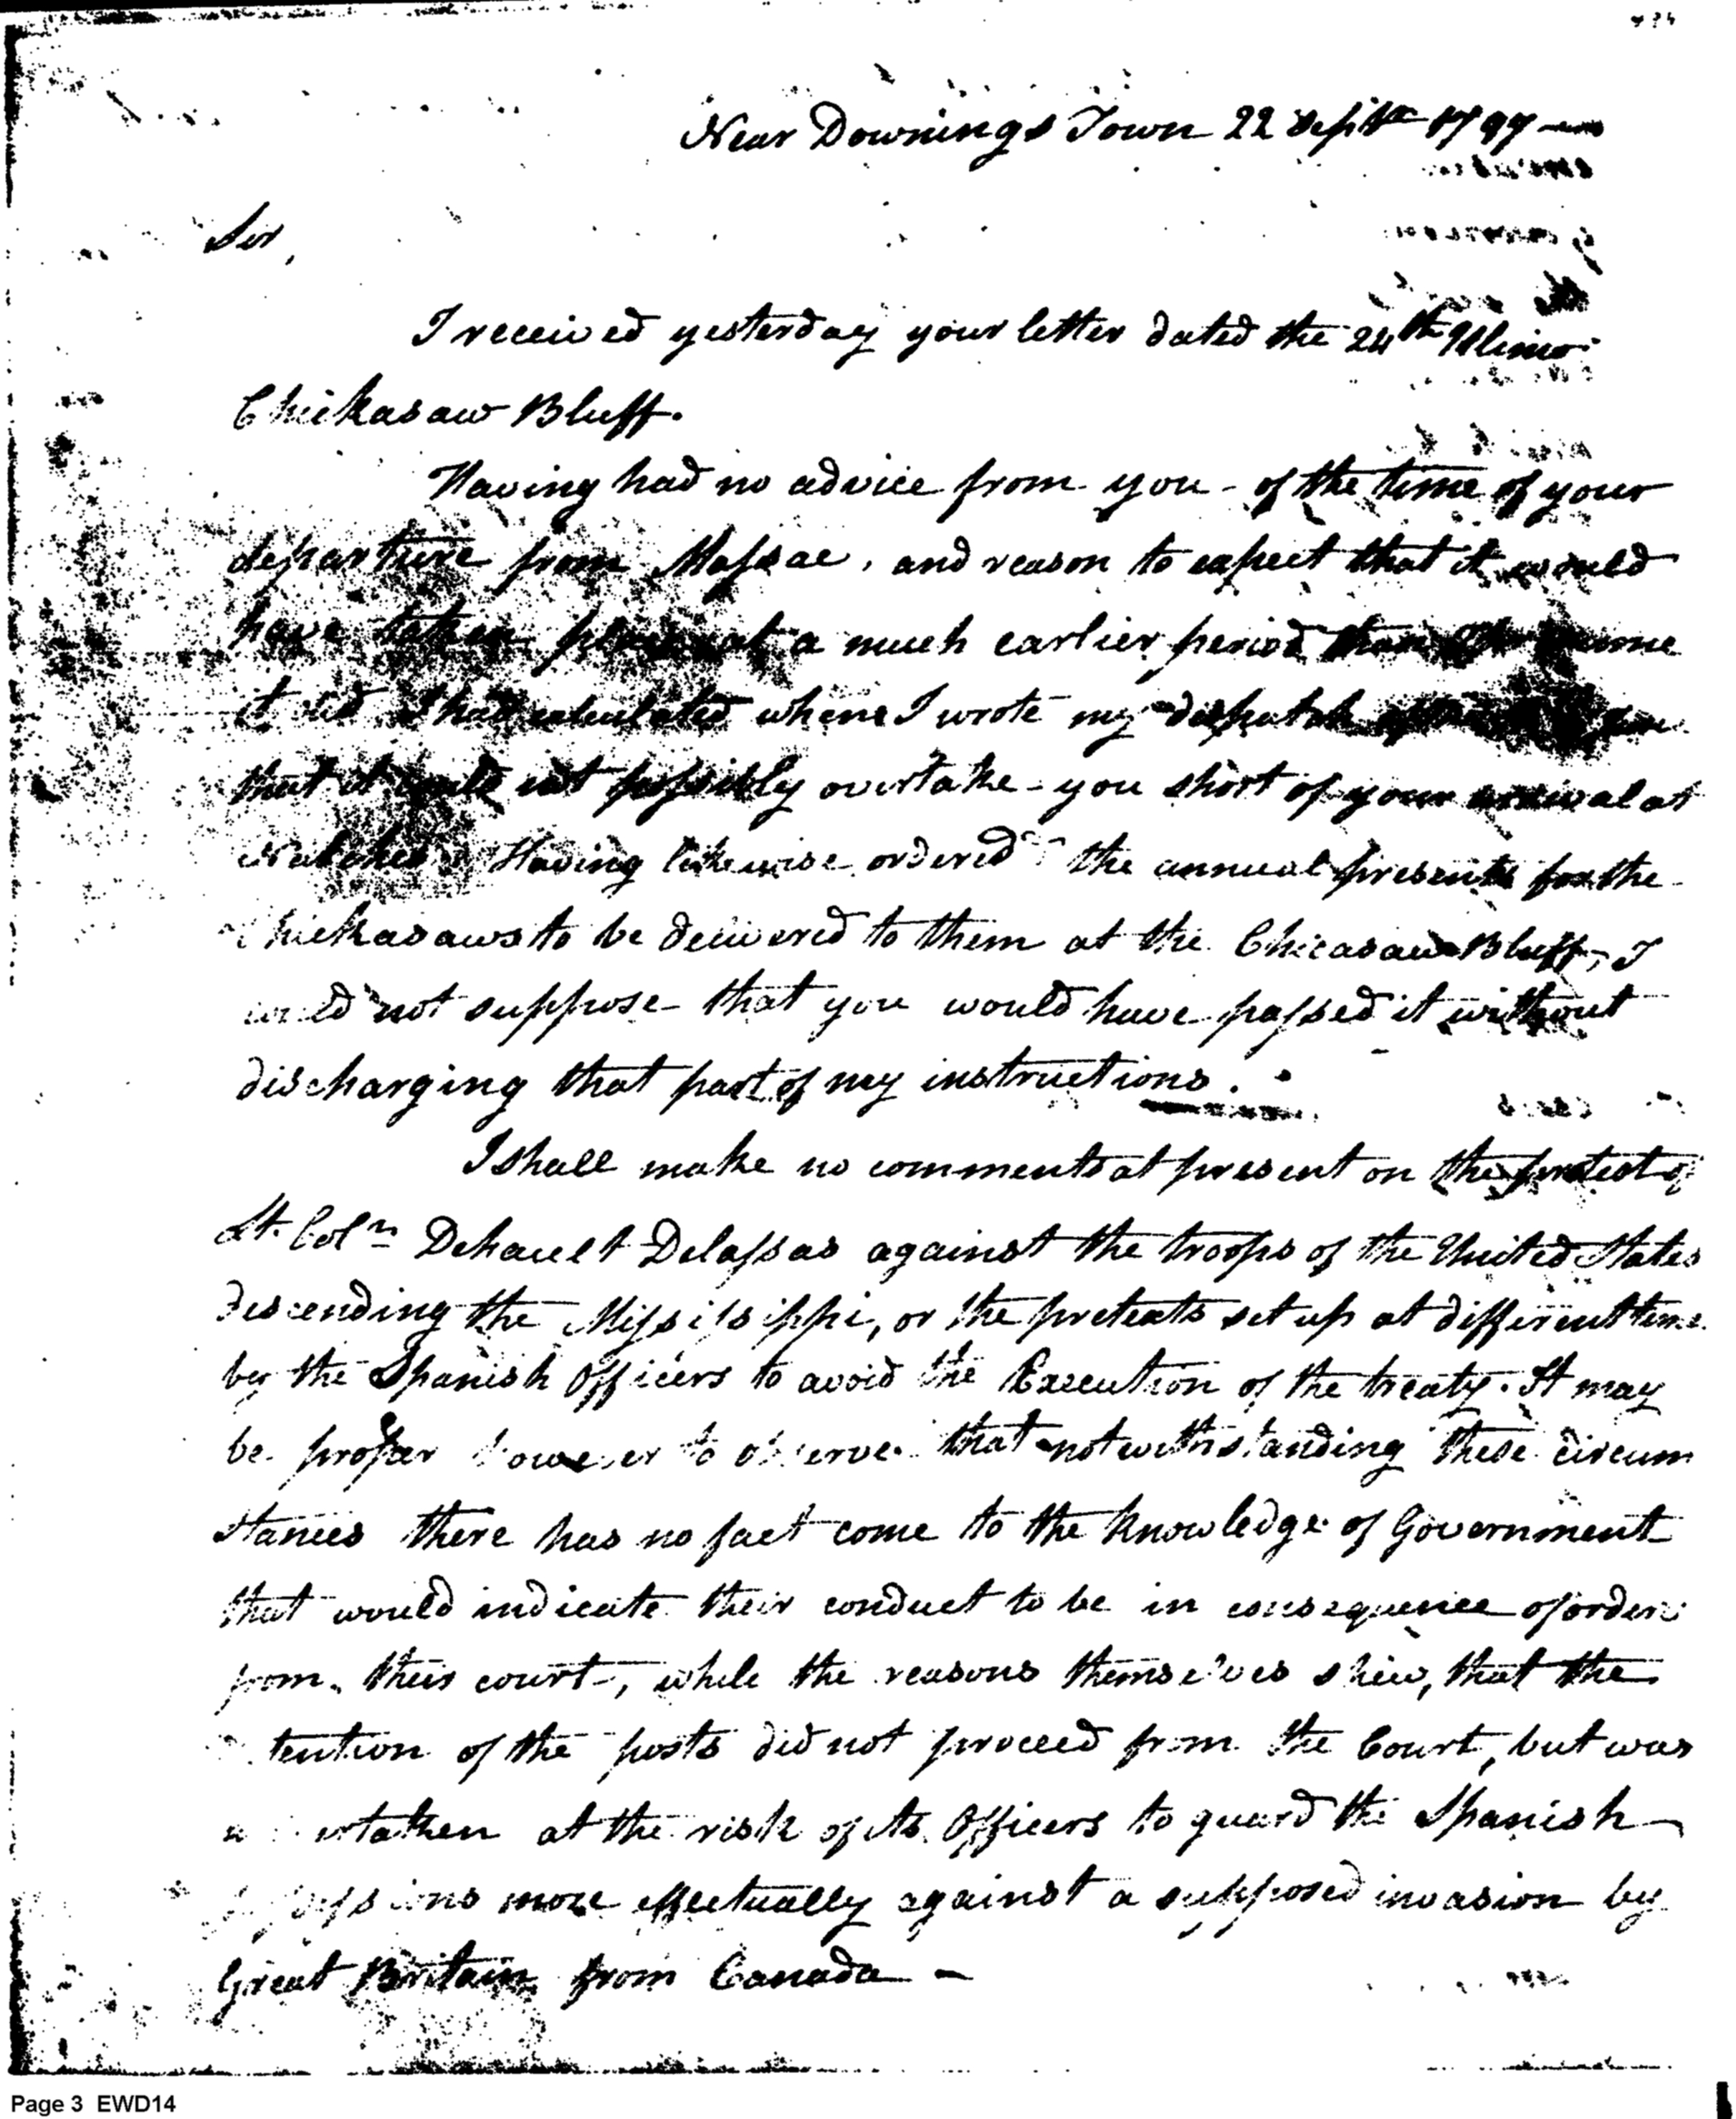 Near Downings Town 22 Septr 1797
Sir,
I received yesterday your letter dated the 24th Ultimo
Chickasaw Bluff.
Having had no advice from you of the time of your
departure from Massac, and reason to expect that it would
have taken place at a much earlier period than
it did I had calculated when I wrote my dispatch
that it could not possibly overtake you short of your arrival at
Natches. Having likewise ordered the annual presents for the
Chickasaws to be delivered to them at the Chicasaw Bluff, I
could not suppose that you would have passed it without
discharging that part of my instructions.
I shall make no comments at present on the protest of
Lt. Coln Dehault Delassas against the troops of the United States
descending the Mississippi, or the pretexts set up at different times
by the Spanish Officers to avoid the Execution of the treaty. It may
be proper however to observe that notwithstanding these circum
stances there has no fact come to the knowledge of Government
that would indicate their conduct to be in consequence of orders
from their court, while the reasons themselves shew, that the
tention of the posts did not proceed from the Court, but was
undertaken at the risk of its Officers to guard the Spanish
possessions more effectually against a supposed invasion by
Great Britain from Canada –
Page 3 EWD14